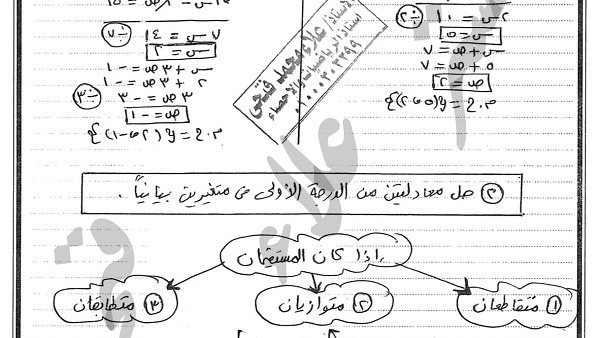 ٢س = ١٠ ÷٢
س = ٥
س + ص = ٧
٥ + ص = ٧
ص = ٢
م.ح = {(٥، ٢)}
٧س = ١٤ ÷٧
س = ٢
س + ٣ص = -١
٢ + ٣ص = -١
٣ص = -٣ ÷٣
ص = -١
م.ح = {(٢، -١)}
الأستاذ/ علاء محمد فتحى
أستاذ الرياضيات والإحصاء
② حل معادلتين من الدرجة الأولى فى متغيرين بيانياً.
إذا كان المستقيمان
① متقاطعان
② متوازيان
③ متطابقان